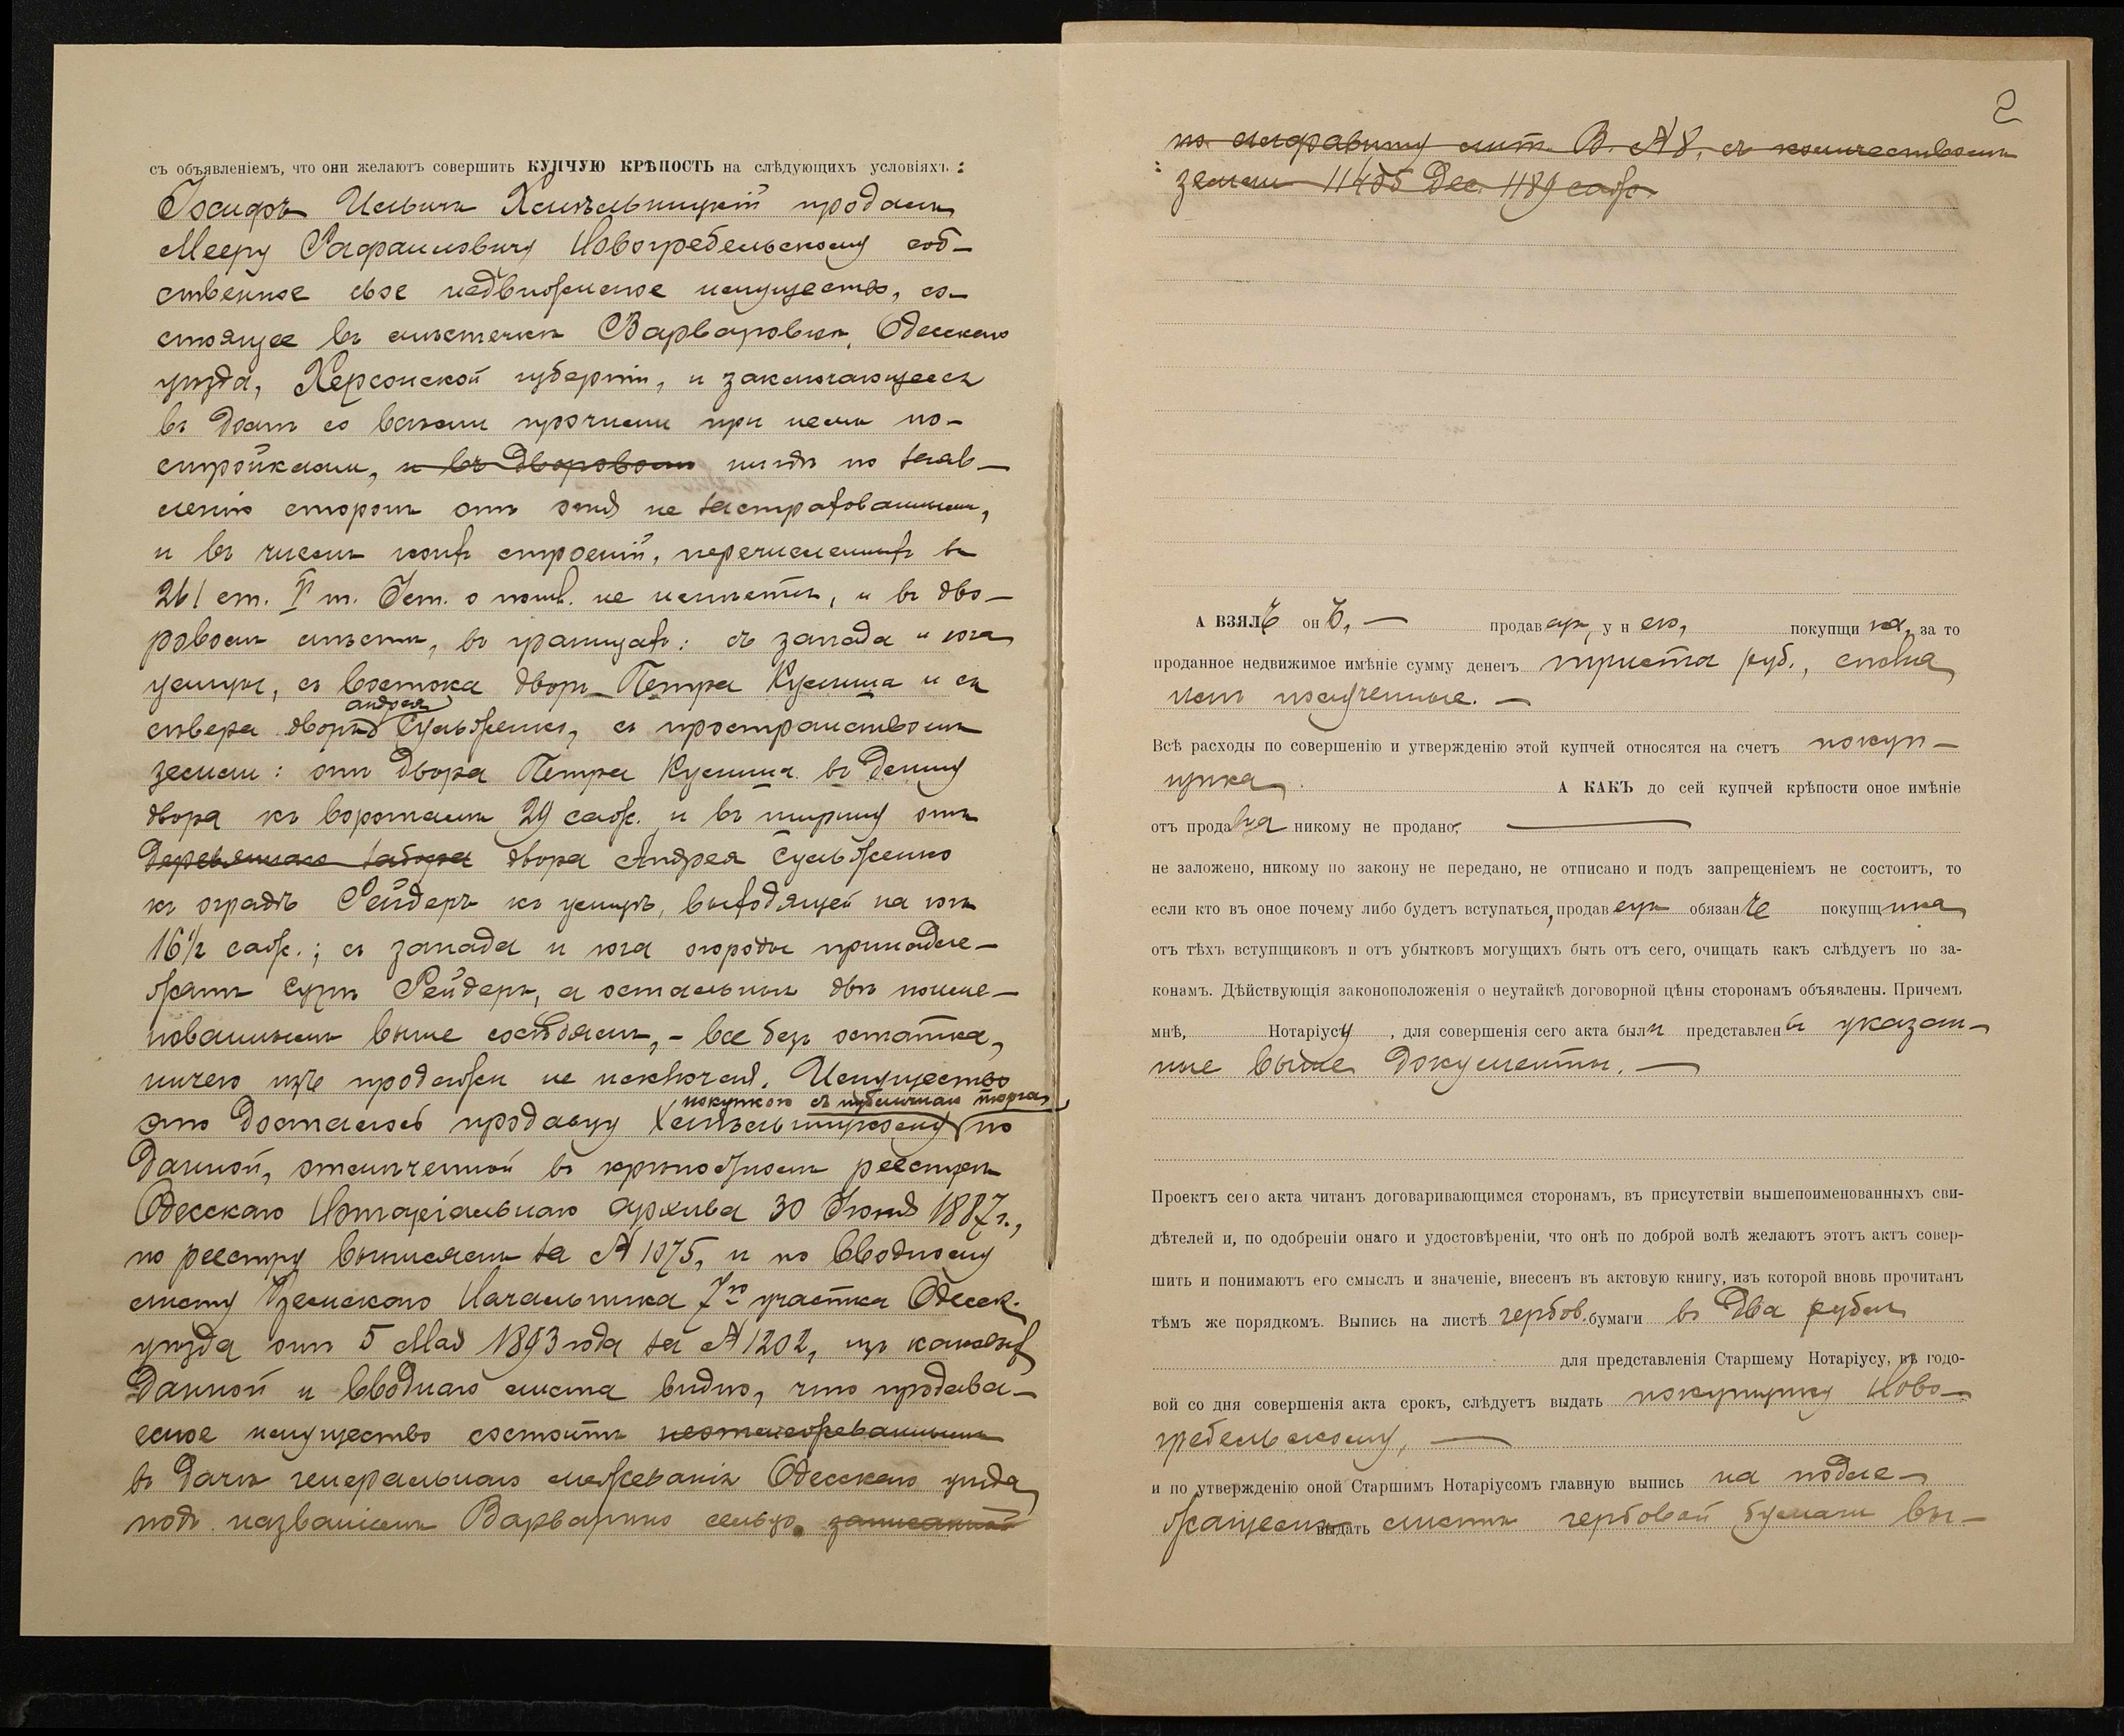 съ объявленіемъ, что они желаютъ совершить КУПЧУЮ КРѢПОСТЬ на слѣдующихъ условіяхъ:
Іосифъ Ильичъ Хмѣльницкій продалъ
Мееру Рафаиловичу Новогребельскому соб-
ственное свое недвижимое имущество, со-
стоящее въ мѣстечкѣ Варваровкѣ, Одесскаго
уѣзда, Херсонской губерніи, и заключающееся
въ домѣ со всѣми прочими при немъ по-
стройками, и въ дворовомъ нигдѣ по заяв-
ленію сторонъ отъ огня не застрахованными,
и въ числѣ тѣхъ строеній, перечисленныхъ въ
261 ст. V т. Уст. о пошл. не имѣется, и въ дво-
ровомъ мѣстѣ, въ границахъ: съ запада и юга
улицы, съ востока дворъ Петра Кулиша и съ
андрея
сѣвера дворъ Сульженко, съ пространствомъ
земли: отъ двора Петра Кулиша въ длину
двора къ воротамъ 29 саж. и въ ширину отъ
деревяннаго забора двора Андрея Сульженко
къ оградѣ Рейдеръ къ улицѣ, выходящей на югъ
16½ саж.; съ запада и юга огороды принадле-
жатъ Рейдеръ, а остальныя двѣ поиме-
нованнымъ выше сосѣдямъ, - все безъ остатка,
ничего изъ продажи не исключая. Имущество
покупкою съ публичнаго торга
это досталось продавцу Хмѣльницкому по
данной, отмѣченной въ крѣпостномъ реестрѣ
Одесскаго Нотаріальнаго Архива 30 Іюня 1887 г.,
по реестру за № 1075, и по вводному
листу Земскаго Начальника 7го участка Одесск.
уѣзда отъ 5 Мая 1893 года за № 1202, изъ каковыхъ
данной и вводнаго листа видно, что продава-
емое имущество состоитъ неотмежеваннымъ
въ дачѣ генеральнаго межеванія Одесскаго уѣзда
подъ названіемъ Варварино сельцо. записанной
2
по алфавиту лит. В. № 8, съ количествомъ
земли 11455 Дес. 1189 саж.
А ВЗЯЛЪ онъ, — продавецъ, у него, покупщика, за то
проданное недвижимое имѣніе сумму денегъ триста руб., сполна
имъ полученные. —
Всѣ расходы по совершенію и утвержденію этой купчей относятся на счетъ покуп-
щика А КАКЪ до сей купчей крѣпости оное имѣніе
отъ продавца никому не продано, —
не заложено, никому по закону не передано, не отписано и подъ запрещеніемъ не состоитъ, то
если кто въ оное почему либо будетъ вступаться, продавецъ обязанъ покупщика
отъ тѣхъ вступщиковъ и отъ убытковъ могущихъ быть отъ сего, очищать какъ слѣдуетъ по за-
конамъ. Дѣйствующія законоположенія о неутайкѣ договорной цѣны сторонамъ объявлены. Причемъ
мнѣ, Нотаріусу, для совершенія сего акта были представлены указан-
ные выше документы. —
Проектъ сего акта читанъ договаривающимся сторонамъ, въ присутствіи вышепоименованныхъ сви-
дѣтелей и, по одобреніи онаго и удостовѣреніи, что онѣ по доброй волѣ желаютъ этотъ актъ совер-
шить и понимаютъ его смыслъ и значеніе, внесенъ въ актовую книгу, изъ которой вновь прочитанъ
тѣмъ же порядкомъ. Выпись на листѣ гербов. бумаги въ два рубля
для представленія Старшему Нотаріусу, въ годо-
вой со дня совершенія акта срокъ, слѣдуетъ выдать покупщику Ново-
гребельскому, —
и по утвержденію оной Старшимъ Нотаріусомъ главную выпись на подле-
выдать жащемъ листѣ гербовой бумаги вы-